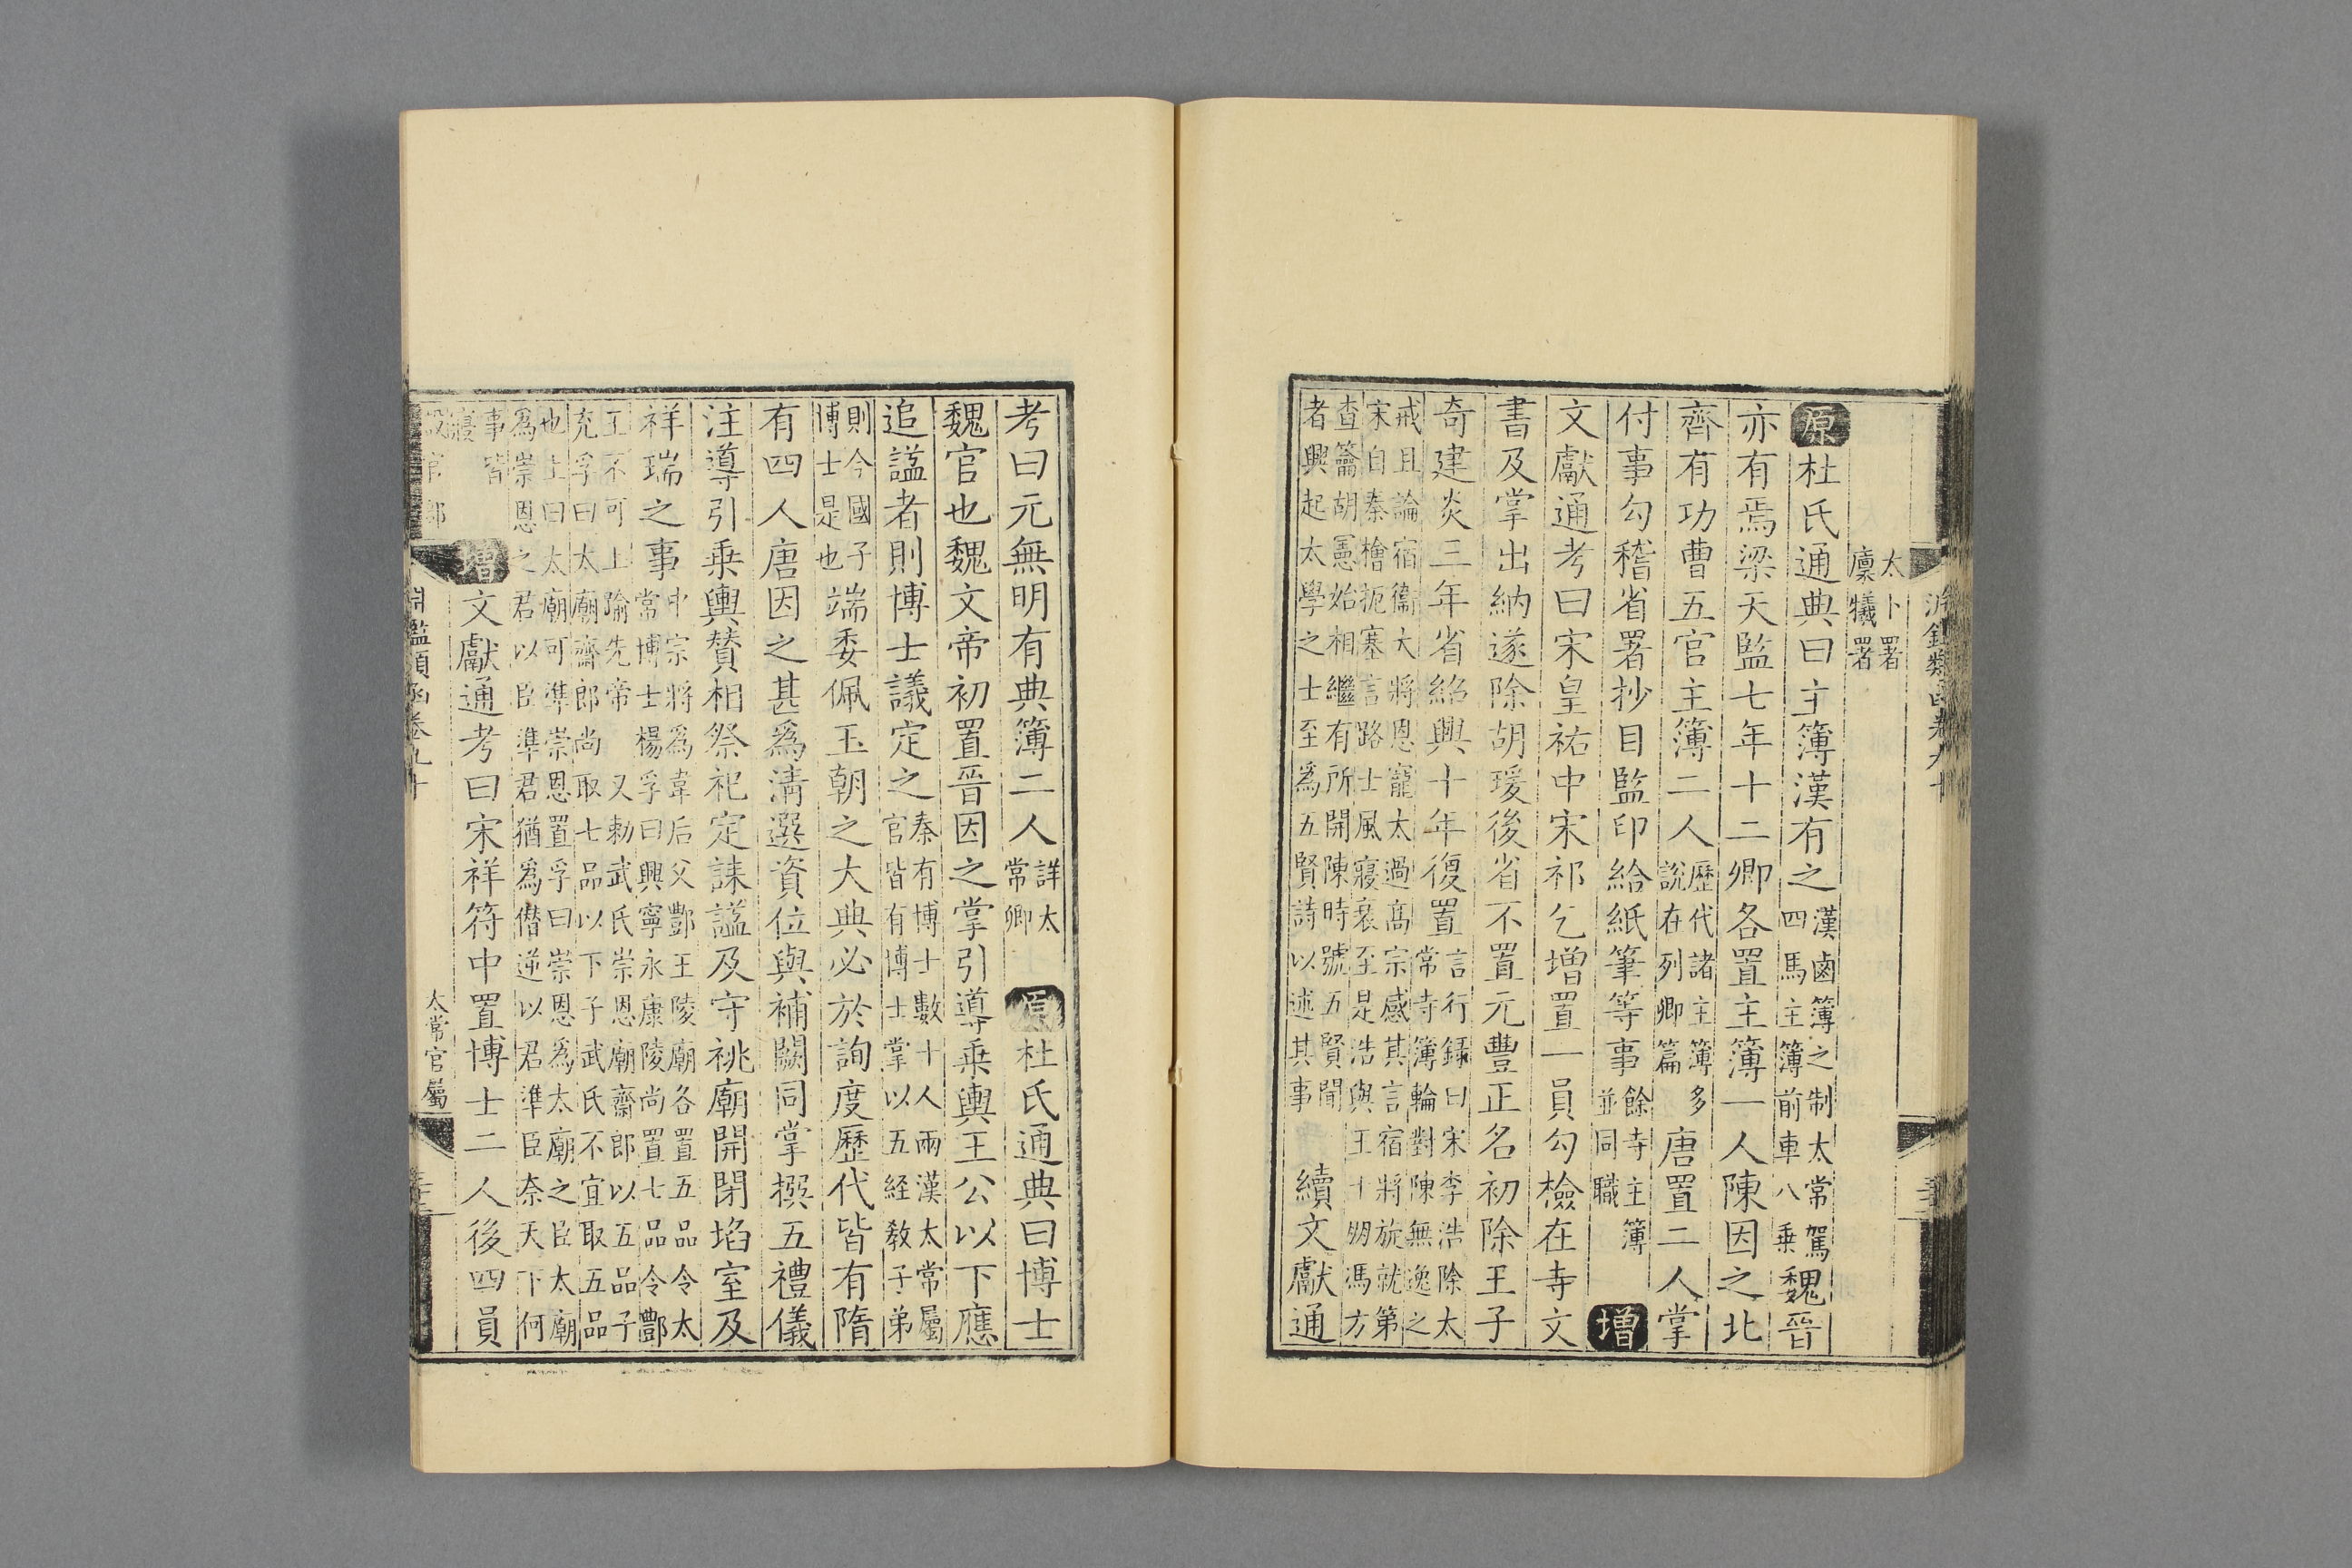 淵鑑類函卷九十
太卜署
廩犧署
原杜氏通典曰主簿漢有之漢鹵簿之制太常駕四馬主簿前車八乗魏晉
亦有焉梁天監七年十二卿各置主簿一人陳因之北
齊有功曹五官主簿二人歷代諸主簿多說在列卿篇唐置二人掌
付事勾稽省署抄目監印給紙筆等事餘寺主簿並同職增
文獻通考曰宋皇祐中宋祁乞增置一員勾檢在寺文
書及掌出納遂除胡瑗後省不置元豐正名初除王子
奇建炎三年省紹興十年復置言行錄曰宋李浩除太常寺簿輪對陳無逸之
戒且論宿衞大將恩寵太過高宗感其言宿將旋就第宋自秦檜扼塞言路士風寢衰至是浩與王十朋馮方
查籥胡憲始相繼有所開陳時號五賢聞者興起太學之士至為五賢詩以述其事續文獻通
考曰元無明有典簿二人詳太常卿原杜氏通典曰博士
魏官也魏文帝初置晉因之掌引導乗輿王公以下應
追謚者則博士議定之秦有博士數十人兩漢太常屬官皆有博士掌以五経敎子弟
則今國子博士是也端委佩玉朝之大典必於詢度歷代皆有隋
有四人唐因之甚爲清選資位與補闕同掌撰五禮儀
注導引乗輿贊相祭祀定誄謚及守祧廟開閉埳室及
祥瑞之事中宗將爲韋后父酆王陵廟各置五品令太常博士楊孚曰興寧永康陵尚置七品令酆
王不可上踰先帝又勅武氏崇恩廟齋郎以五品子充孚曰太廟齋郎尚取七品以下子武氏不宜取五品
也上曰太廟可準崇恩置孚曰崇恩爲太廟之臣太廟爲崇恩之君以臣準君猶爲僭逆以君準臣奈天下何
事皆寢增文獻通考曰宋祥符中置博士二人後四員
設官部
淵鑑類函卷九十
太常官屬